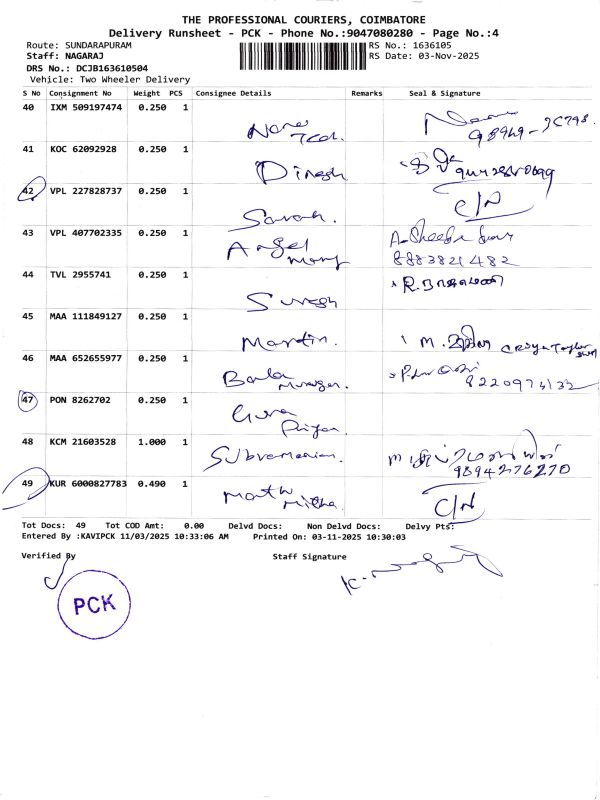 THE PROFESSIONAL COURIERS, COIMBATORE
Delivery Runsheet - PCK - Phone No.:9047080280 - Page No.:4
Route: SUNDARAPURAM RS No.: 1636105
Staff: NAGARAJ RS Date: 03-Nov-2025
DRS No.: DCJB163610504
Vehicle: Two Wheeler Delivery
S No Consignment No Weight PCS Consignee Details Remarks Seal & Signature
40 IXM 509197474 0.250 1
41 KOC 62092928 0.250 1
Dinesh
42 VPL 227828737 0.250 1
C/N
43 VPL 407702335 0.250 1
Angel
Mary
8883821482
44 TVL 2955741 0.250 1
Suresh
45 MAA 111849127 0.250 1
Martin.
46 MAA 652655977 0.250 1
Bala
Murugan.
47 PON 8262702 0.250 1
Guna
Priyan
48 KCM 21603528 1.000 1
Subramanian.
9894276270
49 KUR 6000827783 0.490 1
C/N
Tot Docs: 49 Tot COD Amt: 0.00 Delvd Docs: Non Delvd Docs: Delvy Pts:
Entered By :KAVIPCK 11/03/2025 10:33:06 AM Printed On: 03-11-2025 10:30:03
Verified By Staff Signature
PCK